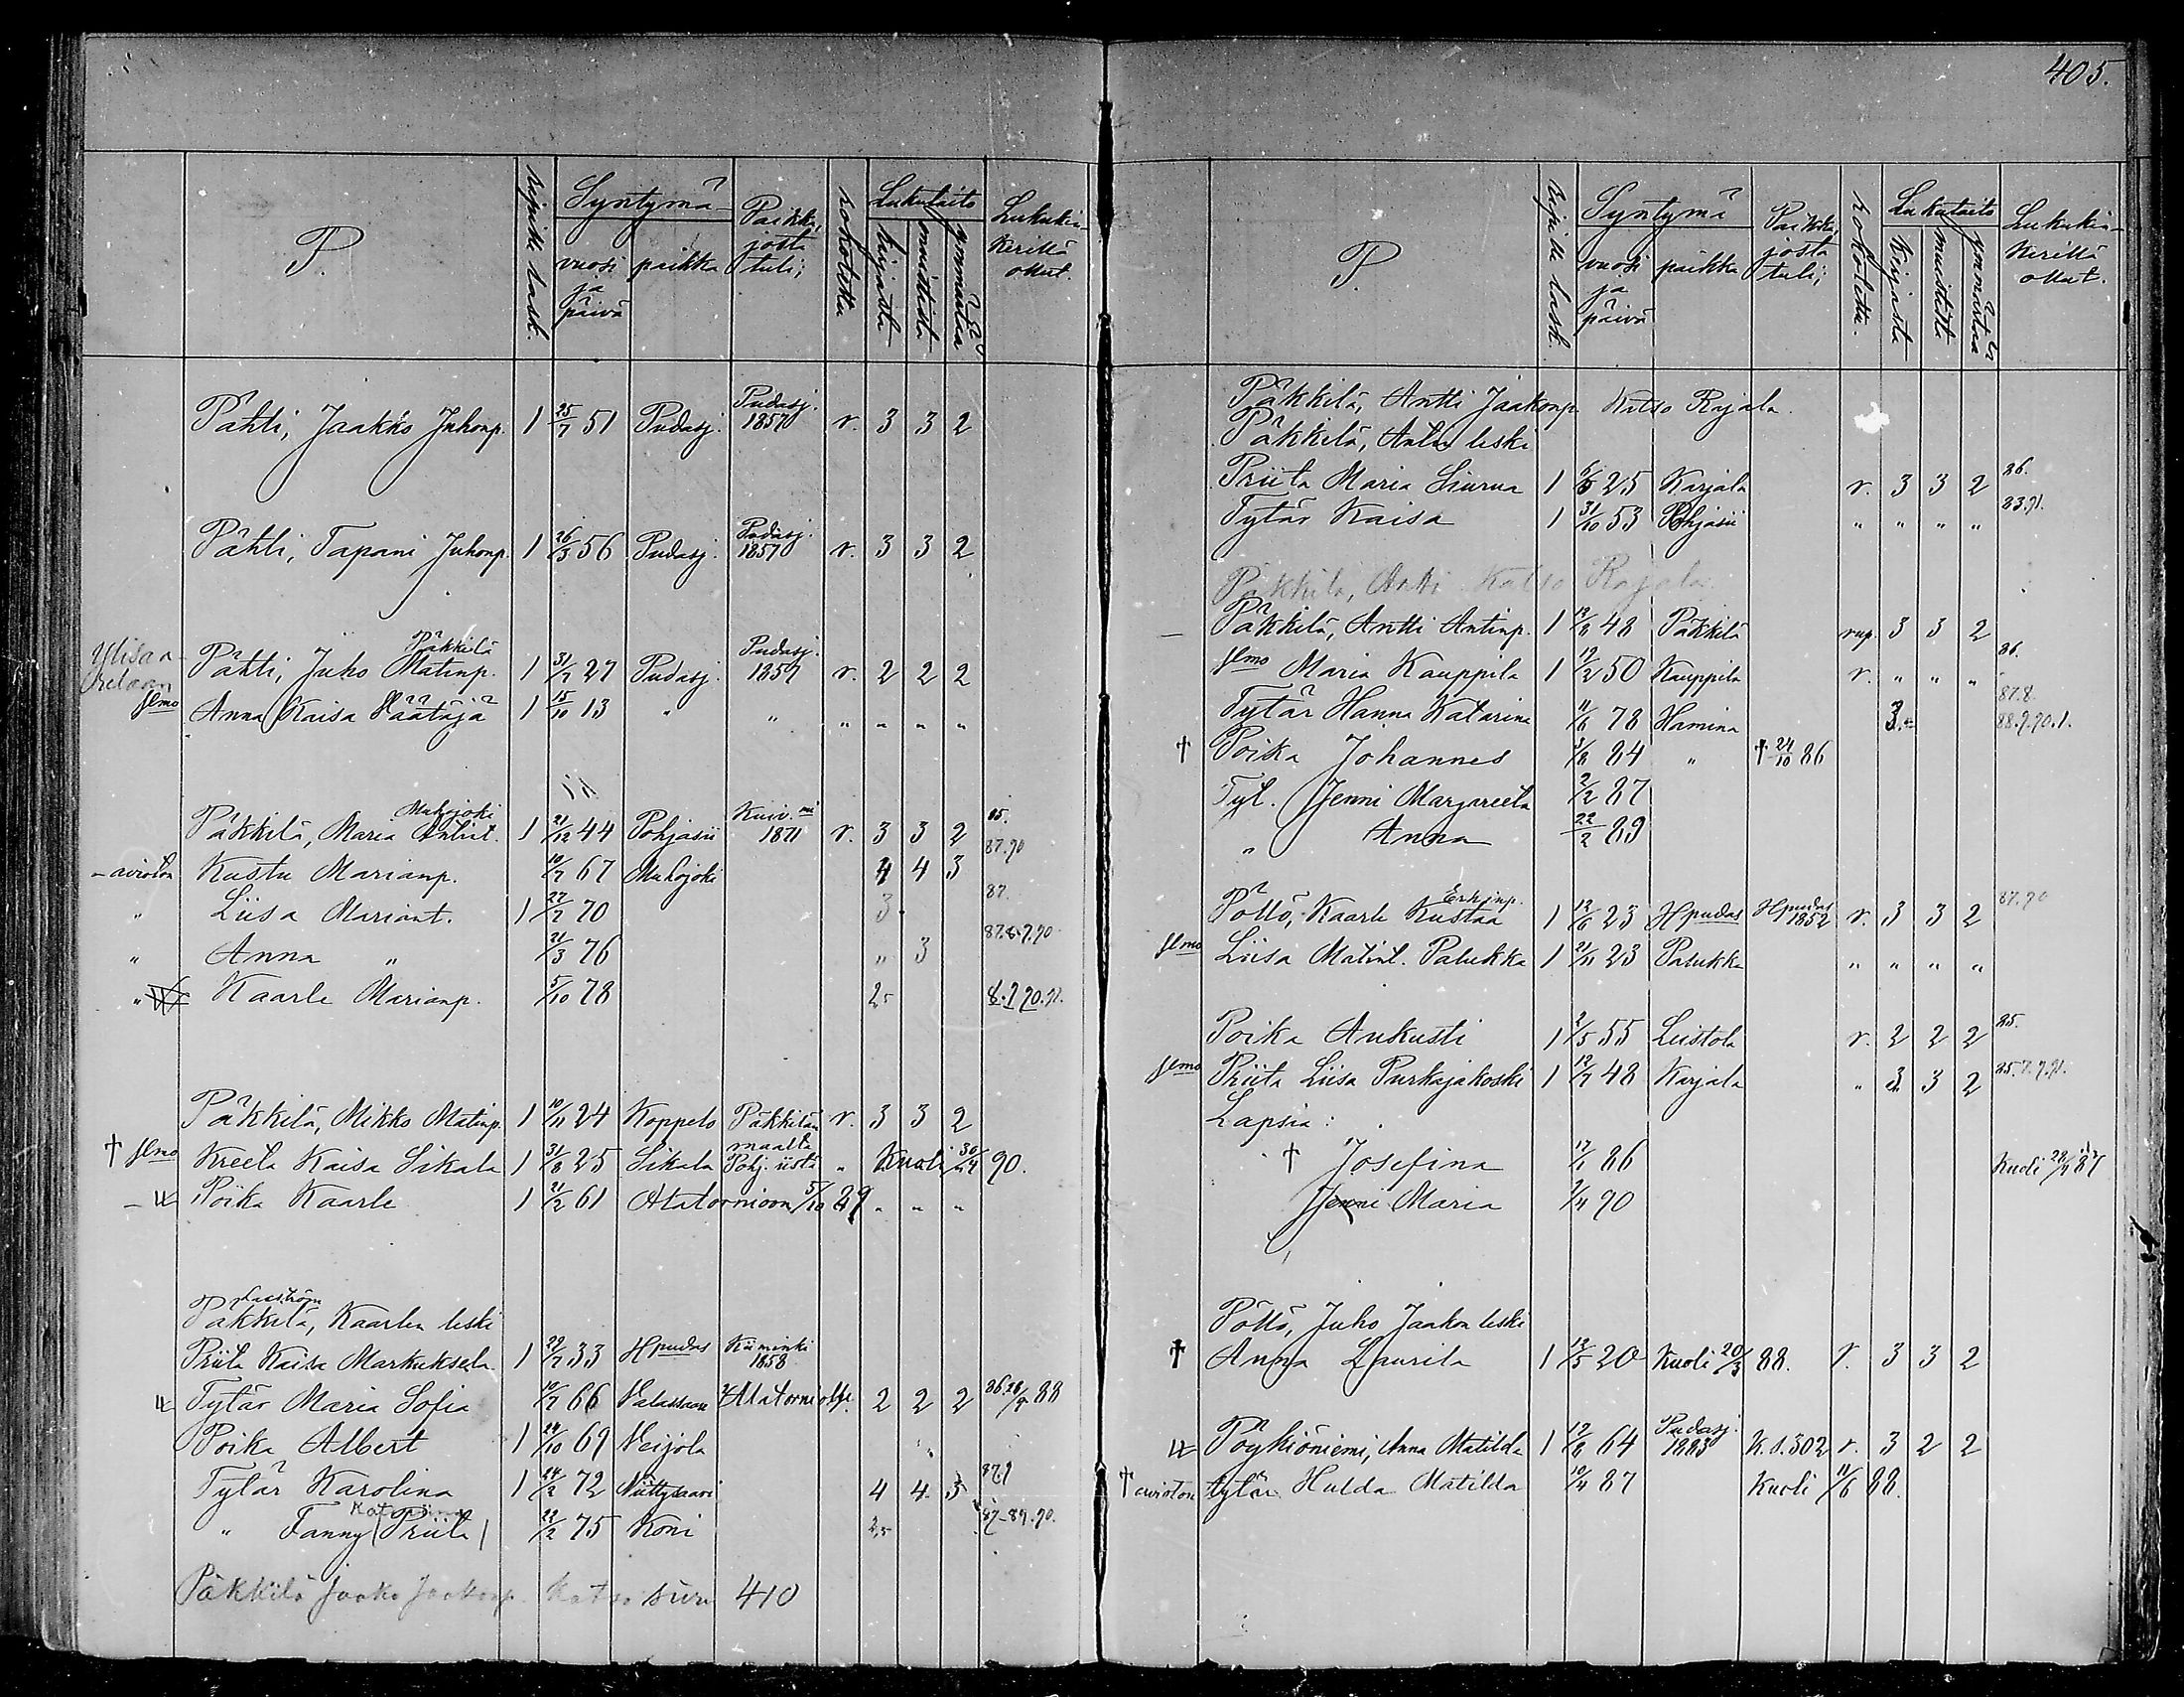 405.
P.
ripille lask.
Syntymä
vuosi ja päivä
paikka
Paikka, josta tuli;
rokotettu
Lukutaito
kirjasta
muistista
ymmärtää
Lukukinkerillä ollut.
Pähti, Jaakko Juhonp. 1 25/7 51 Pudasj. Pudasj. 1857 r. 3 3 2
Pähti, Tapani Juhonp. 1 26/3 56 Pudasj. Pudasj. 1857 r. 3 3 2
Päkkilä
Pähti, Juho Matinp. 1 31/7 27 Pudasj. Pudasj. 1857 r. 2 2 2
Anna Kaisa Määttäjä 1 15/10 13 " " " " " "
Muhojoki
Päkkilä, Maria Antint. 1 21/12 44 Pohjasii Kuiv.mi 1871 r. 3 3 2 85. 87.90
- avioton Kustu Marianp. 10/7 67 Muhojoki 4 4 3
" Liisa Mariant. 1 22/7 70 3 87.
" Anna " 21/3 76 " 3 87.8.9.90
" Kaarle Marianp. 5/10 78 2- 8.9.90.91.
Päkkilä, Mikko Matinp. 1 10/11 24 Koppelo Päkkilän maalta r. 3 3 2
† Kreeta Kaisa Sikala 1 31/8 25 Sikala Pohj. iistä " Kuoli 30/4 90.
Poika Kaarle 1 21/2 61 Alatornioon 5/10 89 " " "
Päkkilä, Kaarlen leski
Priita Kaisa Markuksela 1 22/7 33 Hpudas Kiiminki 1858
Tytär Maria Sofia 10/7 66 Alatornio 2 2 2 86 88
Poika Albert 1 24/10 69 Veijola "
Tytär Karolina 1 24/2 72 Niittysaari 4 4 3 87.9
Katariina
" Fanny (Priita) 22/2 75 Koni 2,5 87-89.90.
Päkkilä Jaako Jaakonp. Katso sivu 410
P.
ripille lask.
Syntymä
vuosi ja päivä
paikka
Paikka, josta tuli;
rokotettu.
Lukutaito
Kirjasta
muistista
ymmärtää
Lukukinkerillä ollut.
Päkkilä, Antti Jaakonp. Katso Rajala.
Päkkilä, Antin leski
Priita Maria Siurua 1 6/5 25 Karjala r. 3 3 2 86.
Tytär Kaisa 1 31/10 53 Pohjasii " " " " 83.91.
Päkkilä, Antti Katso Rajala
- Päkkilä, Antti Antinp. 1 12/8 48 Päkkilä rup. 3 3 2
Maria Kauppila 1 19/2 50 Kauppila r. " " " 86.
Tytär Hanna Katarina 11/6 78 Hamina 3.- 87.8. 88.9.90.1.
† Poika Johannes 3/8 84 " † 24/10 86
Tyt. Jenni Margareeta 2/2 87
" Anna 22/2 89
Erkinp.
Pöllö, Kaarle Kustaa 1 12/6 23 Hpudas Hpudas 1852 r. 3 3 2 87.90
Liisa Matint. Palukka 1 21/11 23 Palukka " " " "
Poika Aukusti 1 2/5 55 Leistola r. 2 2 2 85.
Priita Liisa Purkajakoski 1 12/7 48 Karjala " 3 3 2 85.7.9.91.
Lapsia:
† Josefina 17/1 86 Kuoli 28/4 87
Jenni Maria 7/4 90
Pöllö, Juho Jaakon leski
† Anna Laurila 1 12/5 20 Kuoli 20/3 88. r. 3 3 2
Pöykiöniemi, Anna Matilda 1 12/8 64 Pudasj. 1883 K.s.302 r. 3 2 2
† avioton tytär Hulda Matilda 10/4 87 Kuoli 11/6 88.